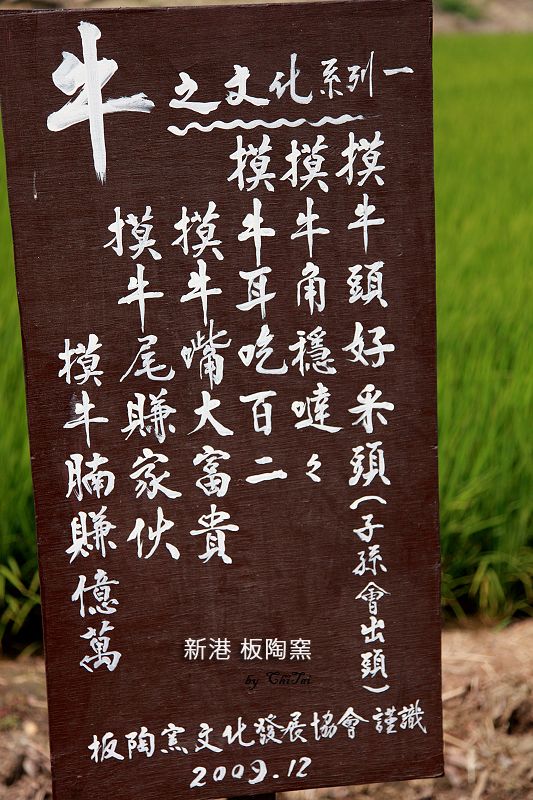 牛之文化系列一
摸牛頭好采頭(子孫會出頭)
摸牛角穩噠々
摸牛耳吃百二
摸牛嘴大富貴
摸牛尾賺家伙
摸牛腩賺億萬
新港 板陶窯
by ChiTai
板陶窯文化發展協會 謹識
2009.12